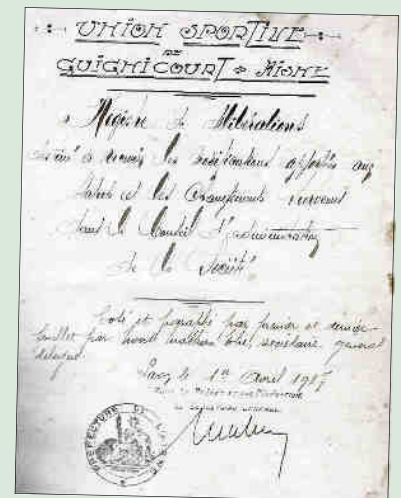 UNION SPORTIVE
DE
GUIGNICOURT s AISNE
Registre de Délibérations
destiné à recevoir les modifications apportées aux
statuts et les changements survenant
dans le Conseil d'administration
de la Société
Coté et paraphé par premier et dernier
feuillet par nous secrétaire général
délégué.
Laon le 1er Avril 19
Le Secrétaire Général
PREFECTURE DE L'AISNE